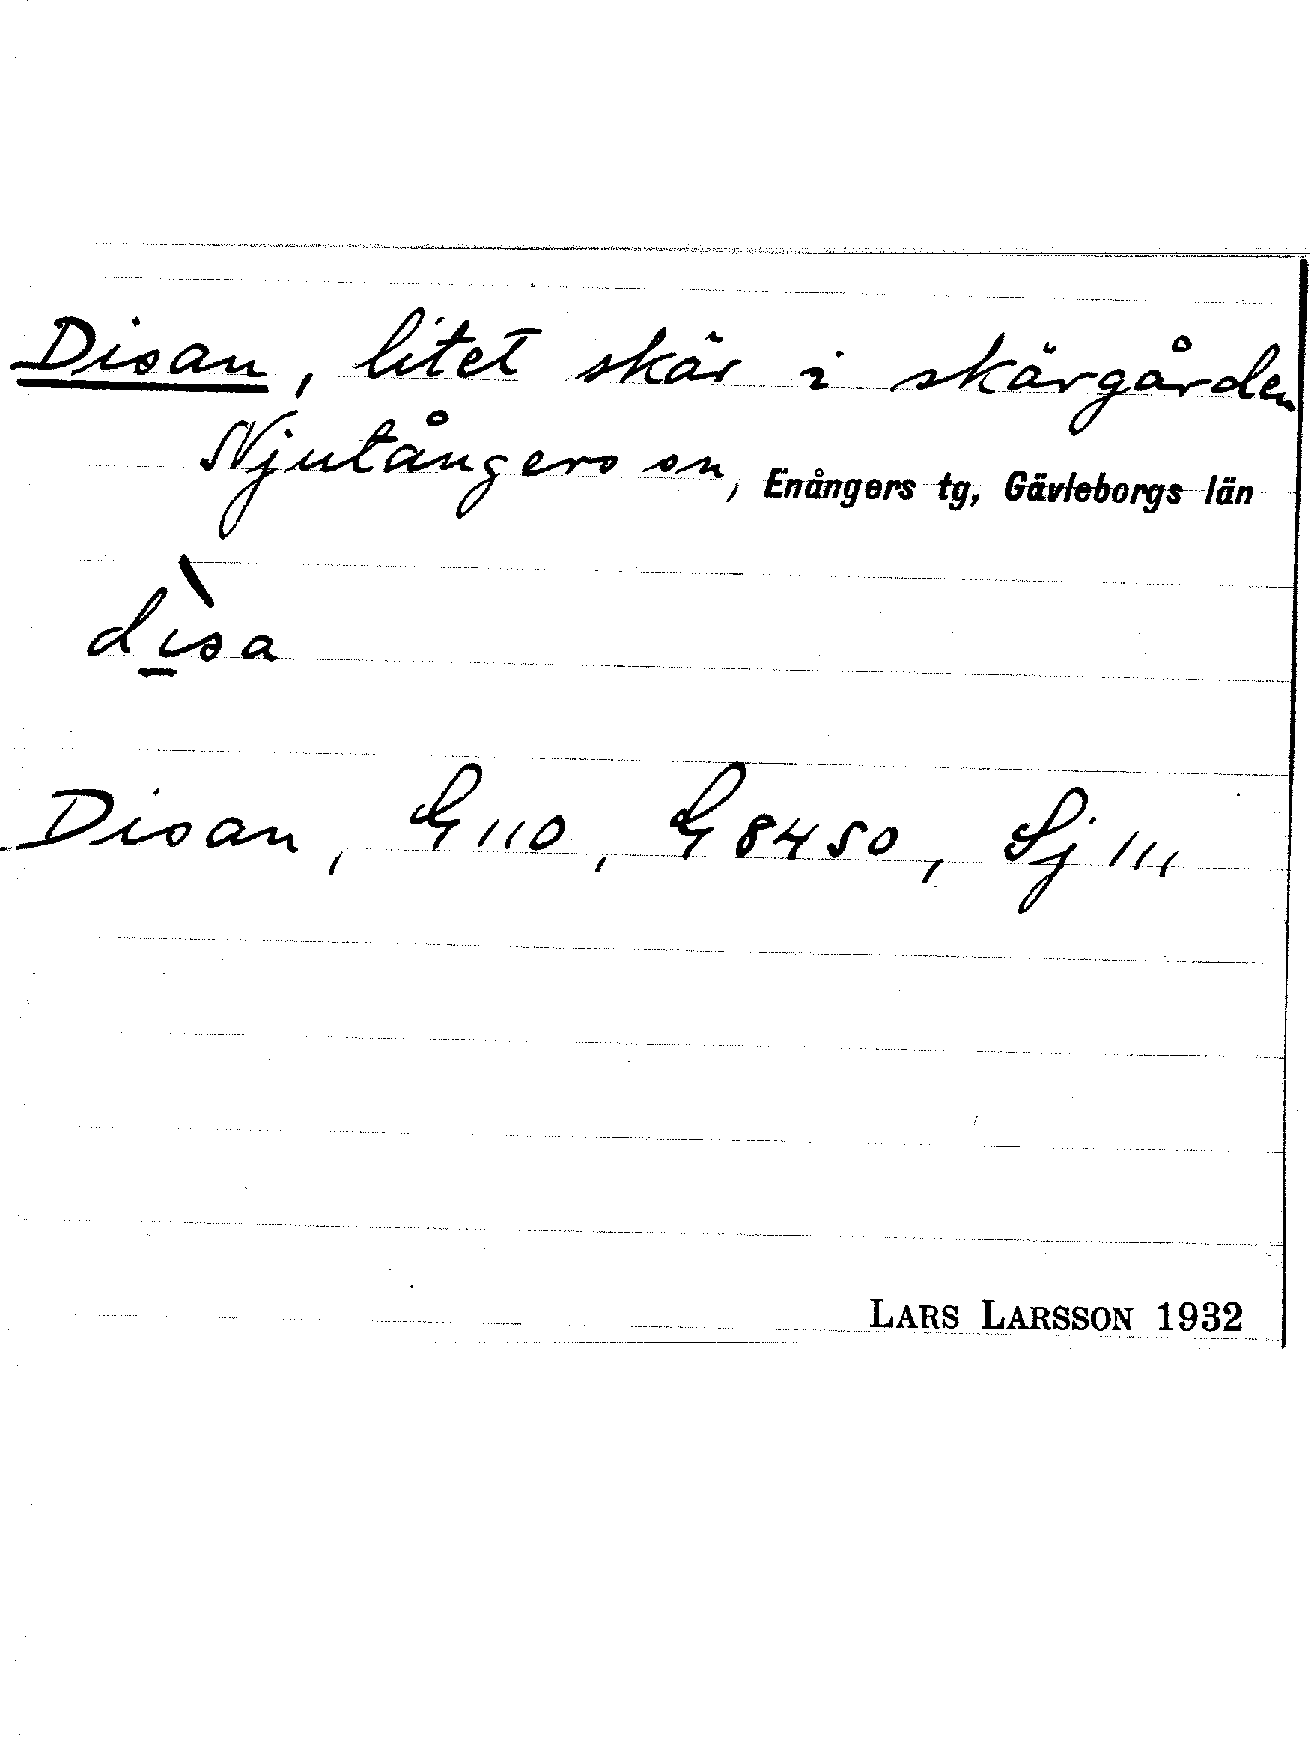 Disan, litet skär i skärgården
Njutångers sn, Enångers tg, Gävleborgs län
dìsa
Disan, G 110, G 8450, Sj 111
LARS LARSSON 1932